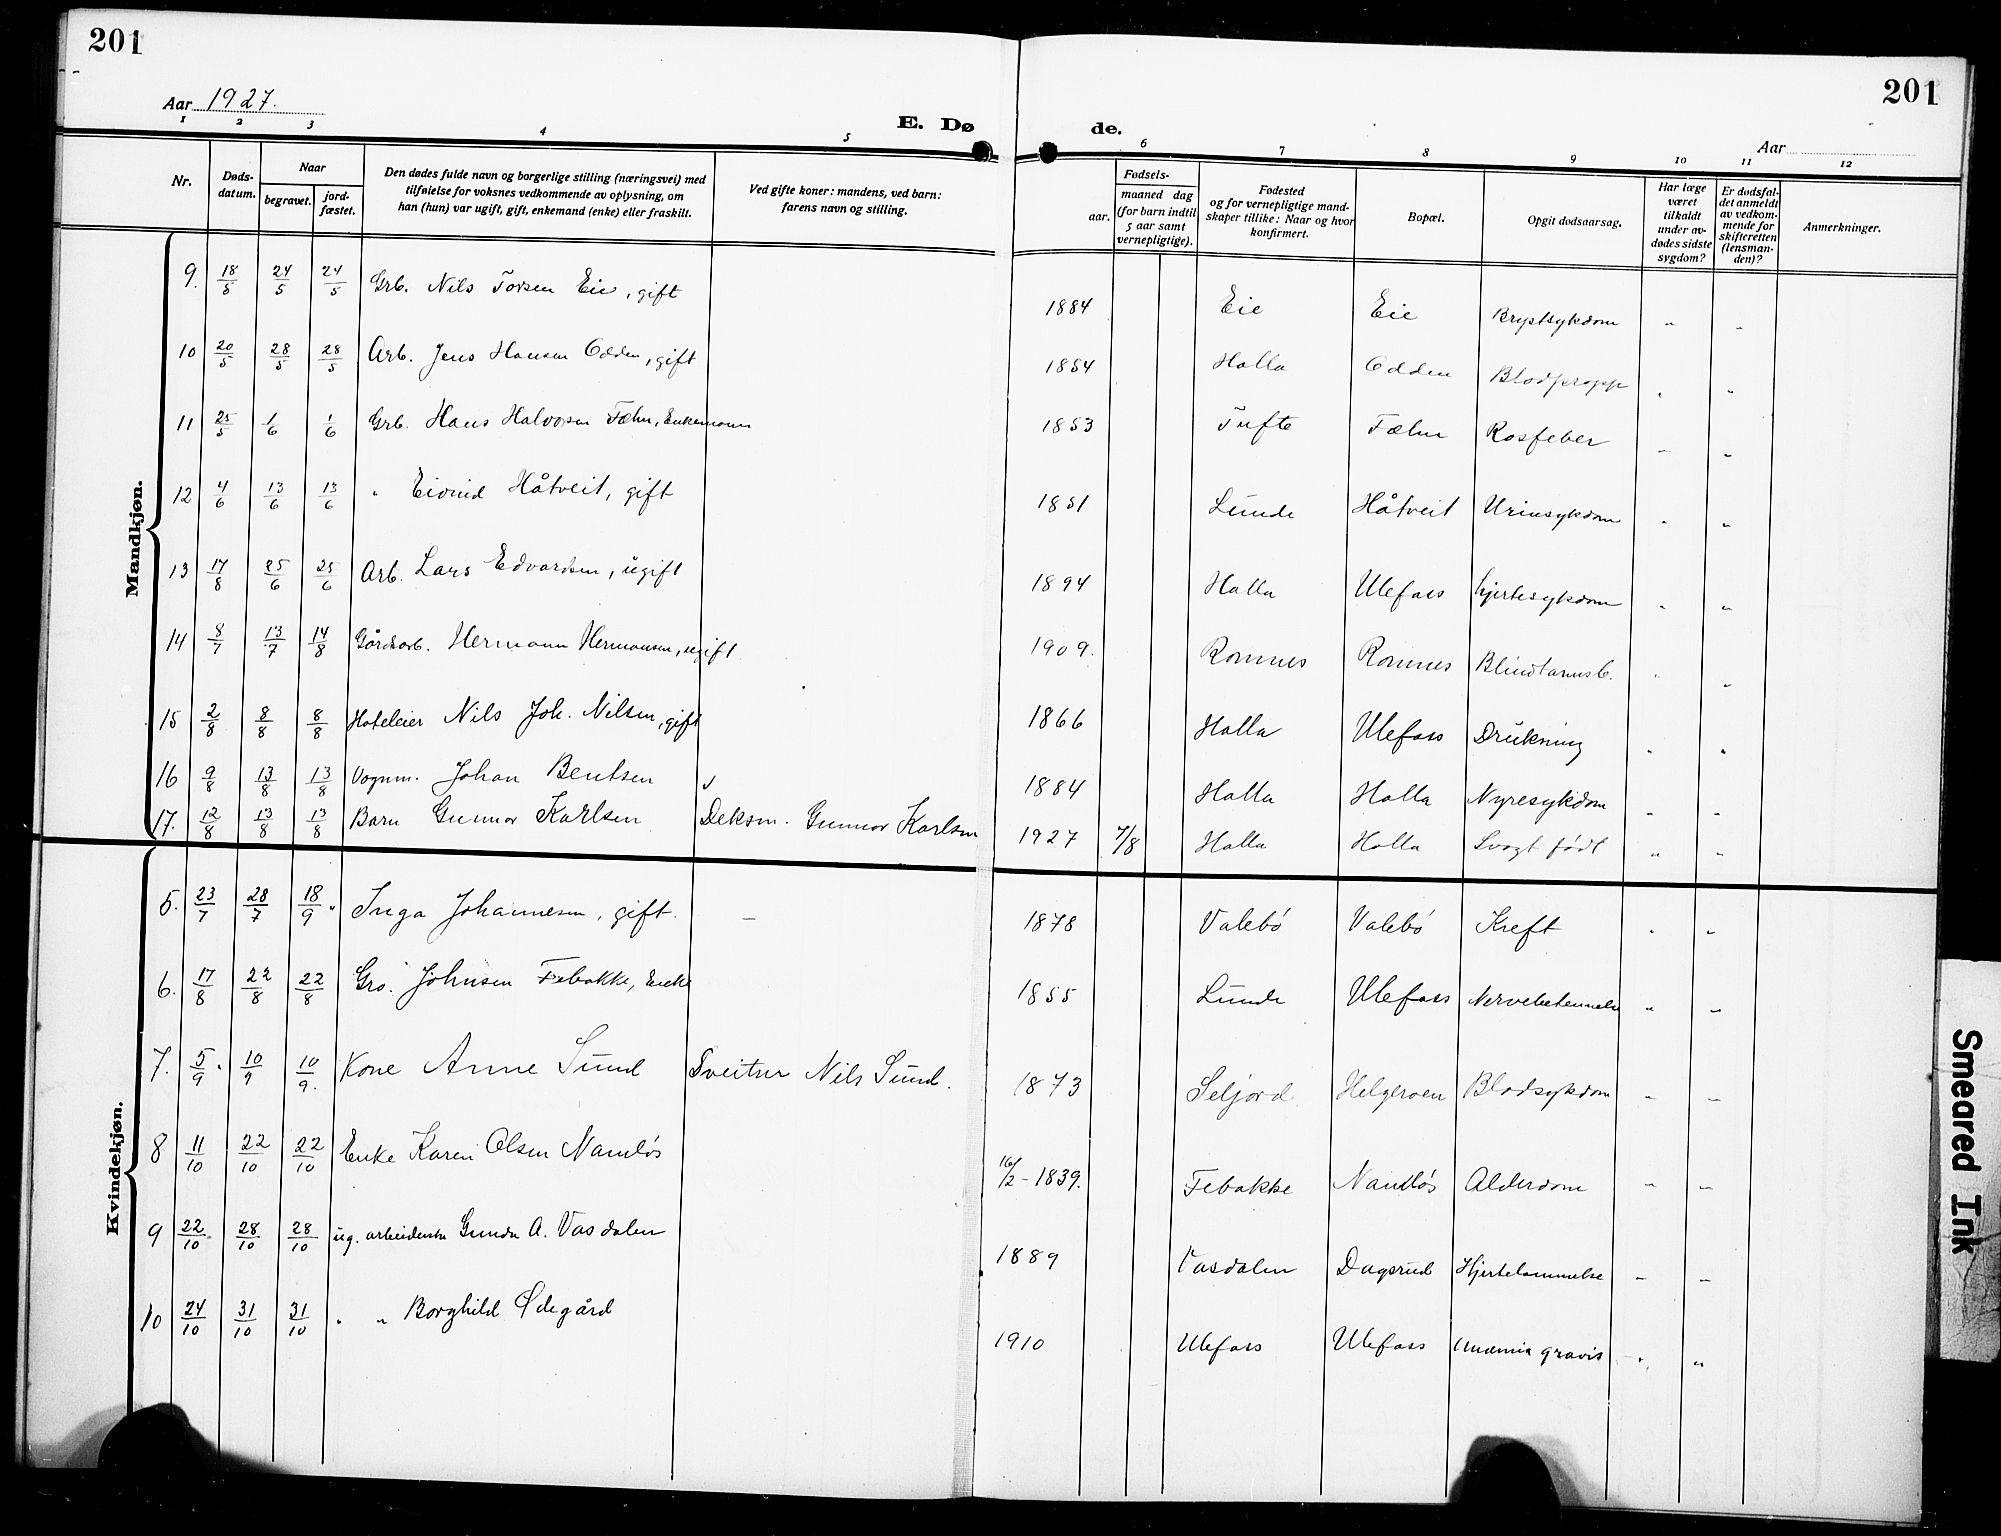 201
201
Aar 1927.
E. Døde.
Aar
1 2 3 4 5 6 7 8 9 10 11 12
Nr.
Døds-datum.
Naar
begravet.
jord-fæstet.
Den dødes fulde navn og borgerlige stilling (næringsvei) med
tilføielse for voksnes vedkommende av oplysning, om
han (hun) var ugift, gift, enkemand (enke) eller fraskilt.
Ved gifte koner: mandens, ved barn:
farens navn og stilling.
Fødsels-
aar.
maaned dag
(for barn indtil
5 aar samt
vernepligtige).
Fødested
og for vernepligtige mand-
skaper tillike: Naar og hvor
konfirmert.
Bopæl.
Opgit dødsaarsag.
Har læge
været
tilkaldt
under av-
dødes sidste
sygdom?
Er dødsfal-
det anmeldt
av vedkom-
mende for
skifteretten
(lensman-
den)?
Anmerkninger.
Mandkjøn.
9. 18/5 24/5 24/5 Grb. Nils Torsen Eie, gift 1884 Eie Eie Brystsykdom " "
10 20/5 28/5 28/5 Arb. Jens Hansen Odden, gift 1854 Holla Odden Blodpropp " "
11 25/5 1/6 1/6 Grb. Hans Halvorsen Fæhn, Enkemann 1853 Tufte Fæhn Rosfeber " "
12 4/6 13/6 13/6 " Eivind Håtveit, gift 1851 Lunde Håtveit Urinsykdom " "
13 17/8 25/6 25/6 Arb. Lars Edvardsen, ugift 1894 Holla Ulefoss hjertesykdom " "
14 8/7 13/7 14/8 Gårdsarb. Hermann Hermansen, ugift 1909. Romnes Romnes Blindtarmsb. " "
15 2/8 8/8 8/8 Hoteleier Nils Joh. Nilsen, gift 1866 Holla Ulefoss Drukning " "
16 9/8 13/8 13/8 Vognm. Johan Bentsen 1884 Holla Holla Nyresykdom " "
17. 12/8 13/8 13/8 Barn Gunnar Karlsen Deksm. Gunnar Karlsen 1927 7/8 Holla Holla Svagt født " "
Kvindekjøn.
5. 23/7 28/7 18/9 " Inga Johannesen, gift. — 1878 Valebö Valebö Kreft " "
6. 17/8 22/8 22/8 Gro. Johnsen Febakke, Enke 1855 Lunde Ulefoss Nervebetennelse " "
7. 5/9 10/9 10/9. Kone Anne Sund Sveitser Nils Sund. 1873 Seljord Helgeroen Blodsykdom " "
8 11/10 22/10 22/10 Enke Karen Olsen Namløs 16/2 - 1839. Febakke Namløs Alderdom " "
9 22/10 28/10 28/10 ug. arbeiderske Gunda A. Vasdalen 1889 Vasdalen Dagsrud Hjertelammelse - -
10 24/10 31/10 31/10 " " Borghild Ødegård 1910 Ulefoss Ulefoss Anæmia gravis " "
Smeared Ink